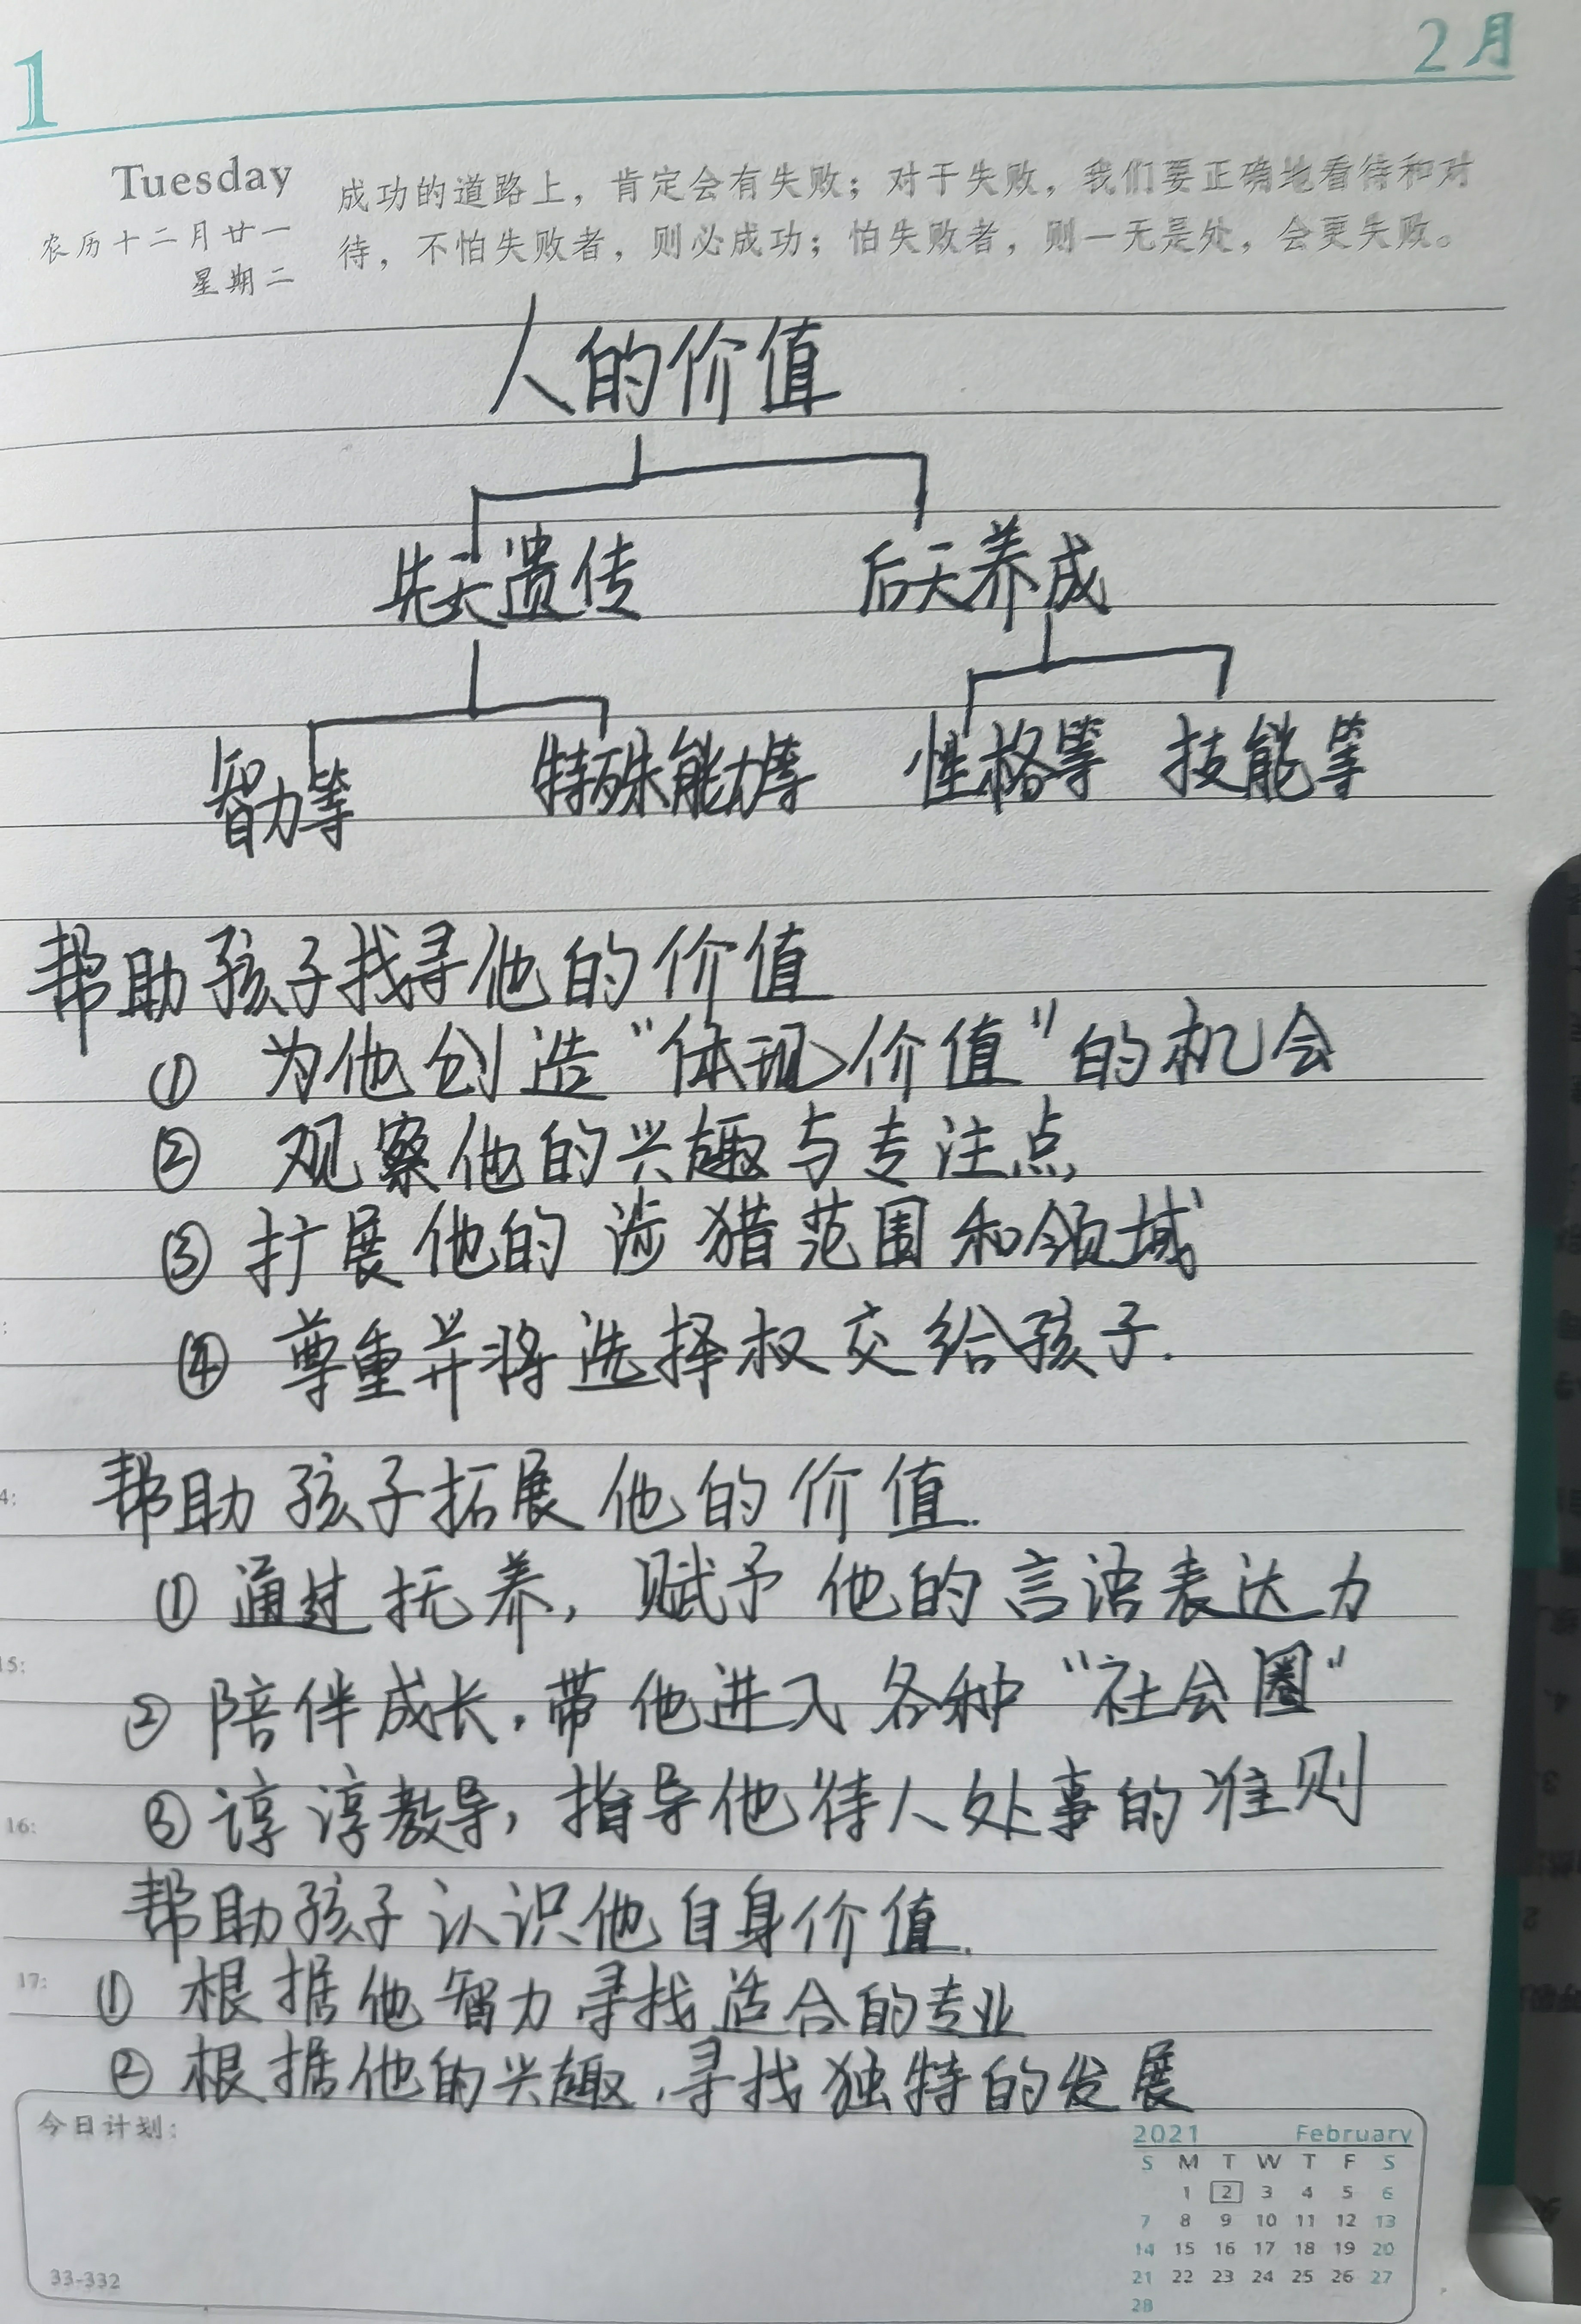 1
2月
Tuesday
农历十二月廿一
星期二
成功的道路上，肯定会有失败；对于失败，我们要正确地看待和对
待，不怕失败者，则必成功；怕失败者，则一无是处，会更失败。
人的价值
先天遗传 后天养成
智力等 特殊能力等 性格等 技能等
帮助孩子找寻他的价值
① 为他创造“体现价值”的机会
② 观察他的兴趣与专注点
③ 扩展他的涉猎范围和领域
④ 尊重并将选择权交给孩子.
4:
帮助孩子拓展他的价值.
① 通过抚养，赋予他的言语表达力
15:
② 陪伴成长，带他进入各种“社会圈”
③ 谆谆教导，指导他待人处事的准则
16:
帮助孩子认识他自身价值.
17:
① 根据他智力寻找适合的专业
② 根据他的兴趣，寻找独特的发展
今日计划：
2021 February
S M T W T F S
1 2 3 4 5 6
7 8 9 10 11 12 13
14 15 16 17 18 19 20
21 22 23 24 25 26 27
28
33-332